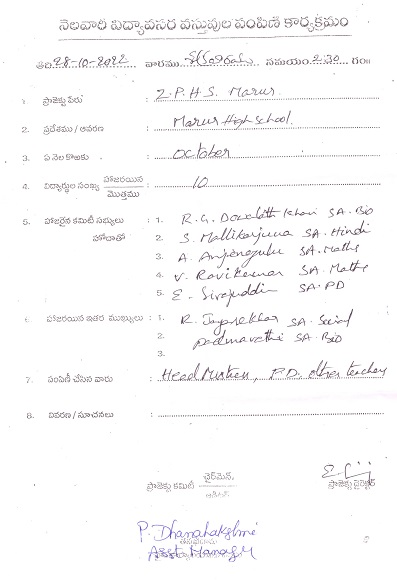 నెలవారి విద్యావసర వస్తువుల పంపిణి కార్యక్రమం
తేది: 28-10-2022 వారము శుక్రవారము సమయం 2:30 గం॥
1. ప్రాజెక్టు పేరు : Z.P.H.S. Marur
2. ప్రదేశము / ఆవరణ : Marur High school.
3. ఏ నెల కొఱకు : October
4. విద్యార్థుల సంఖ్య హాజరయిన / మొత్తము : 10
5. హాజరైన కమిటీ సభ్యులు : 1. R.G. Dowlath Khan SA. Bio
హోదాతో 2. S. Mallikarjuna SA. Hindi
3. A. Anjengulu SA. Maths
4. V. Ravikumar SA. Maths
5. E. Sirajuddin SA. PD
6. హాజరయిన ఇతర ముఖ్యులు : 1. R. Jayasekhar SA. Social
2. Padmavathi SA. Bio
3.
7. పంపిణీ చేసిన వారు : Head Mistress, P.D. other teachers
8. వివరణ / సూచనలు :
ప్రాజెక్టు కమిటీ ఛైర్మెన్.
ప్రాజెక్టు డైరెక్టర్
P. Dhanalakshmi
Asst Manager